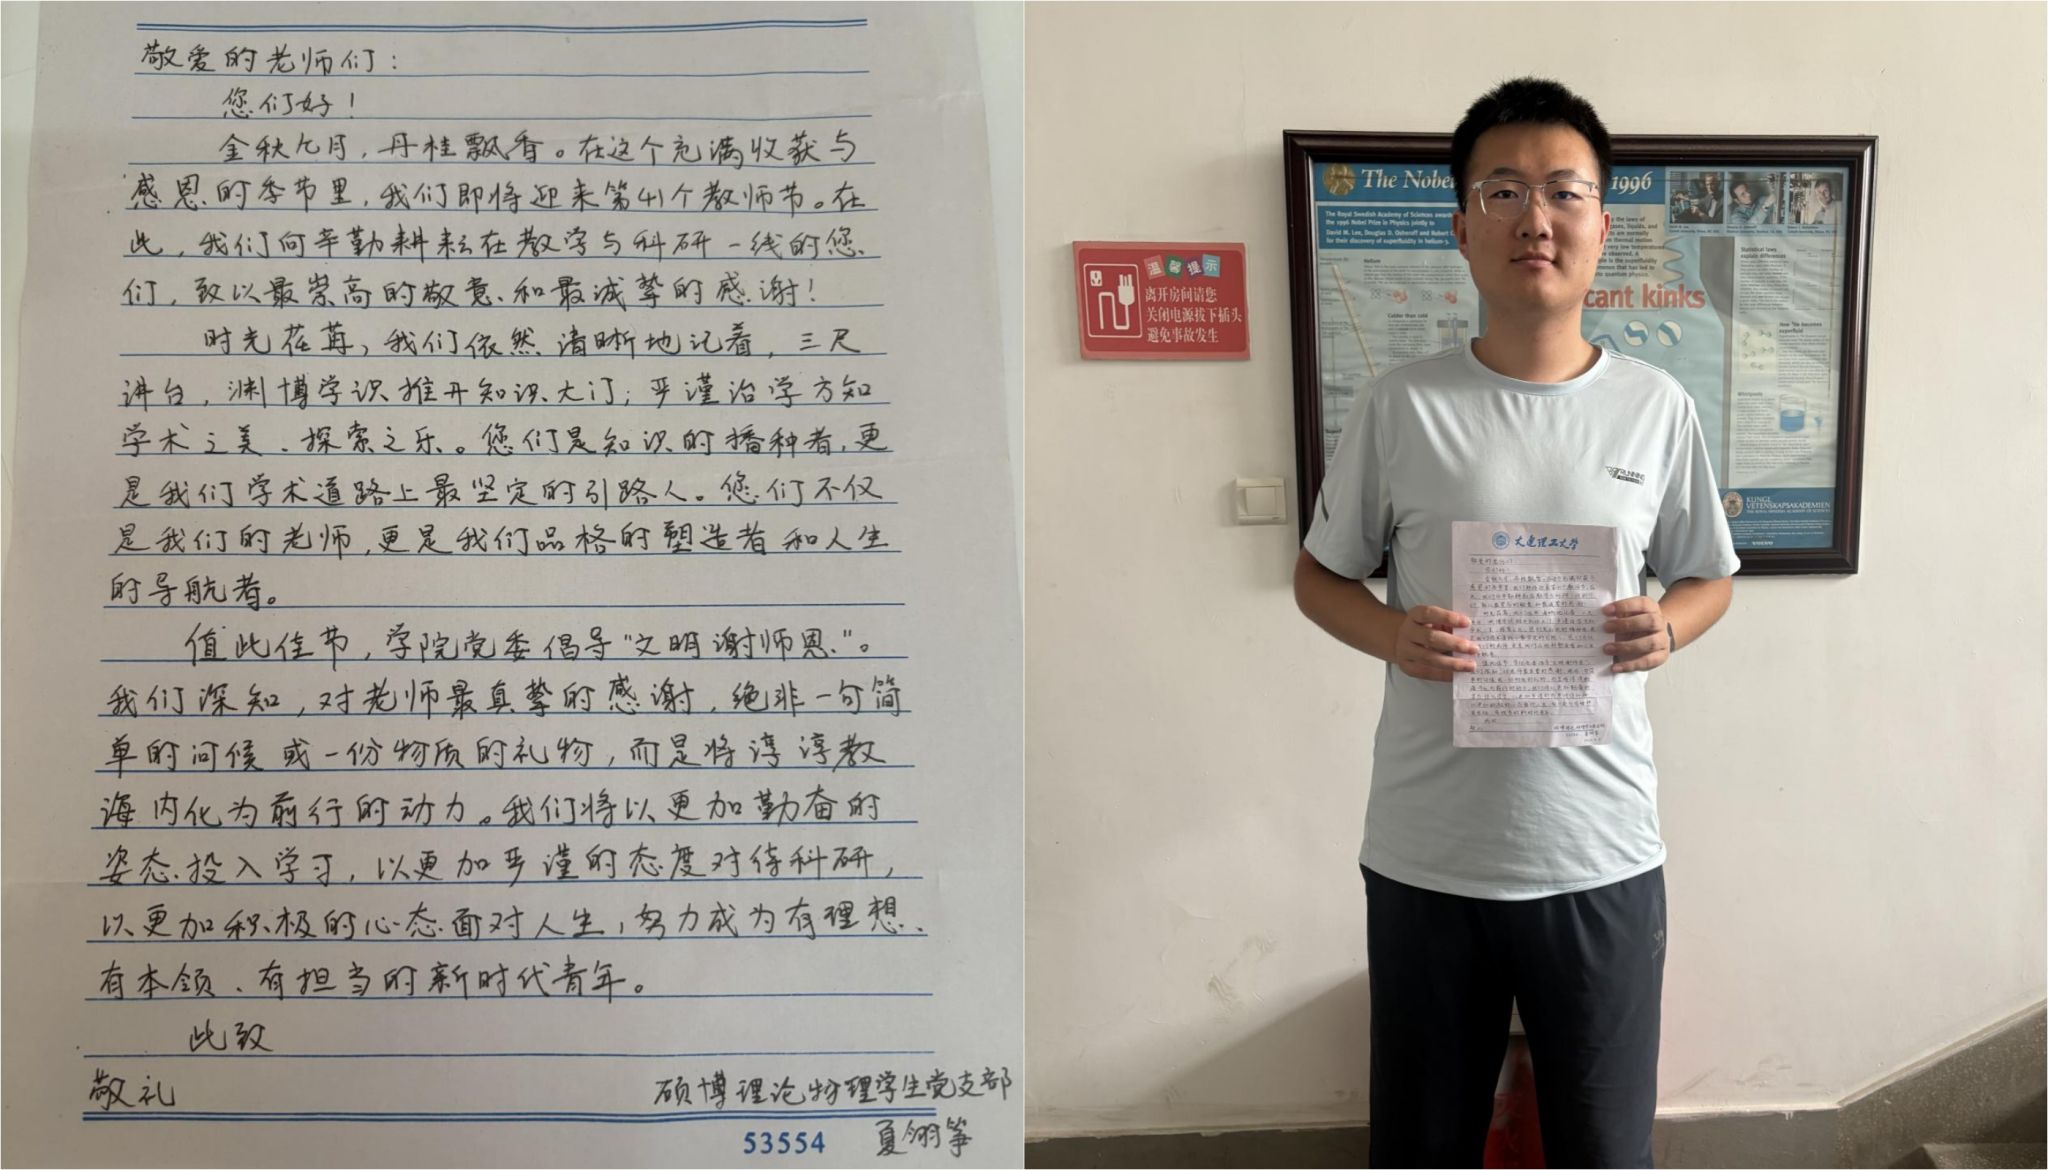 敬爱的老师们：
您们好！
金秋九月，丹桂飘香。在这个充满收获与
感恩的季节里，我们即将迎来第41个教师节。在
此，我们向辛勤耕耘在教学与科研一线的您
们，致以最崇高的敬意和最诚挚的感谢！
时光荏苒，我们依然清晰地记着，三尺
讲台，渊博学识推开知识大门；严谨治学方知
学术之美、探索之乐。您们是知识的播种者，更
是我们学术道路上最坚定的引路人。您们不仅
是我们的老师，更是我们品格的塑造者和人生
的导航者。
值此佳节，学院党委倡导“文明谢师恩”。
我们深知，对老师最真挚的感谢，绝非一句简
单的问候或一份物质的礼物，而是将谆谆教
诲内化为前行的动力。我们将以更加勤奋的
姿态投入学习，以更加严谨的态度对待科研，
以更加积极的心态面对人生，努力成为有理想、
有本领、有担当的新时代青年。
此致
敬礼
硕博理论物理学生党支部
53554
夏翊筝
温馨提示
离开房间请您
关闭电源拔下插头
避免事故发生
The Nobel
1996
The Royal Swedish Academy of Sciences
the 1996 Nobel Prize in Physics jointly to
David M. Lee, Douglas D. Osheroff and Robert C.
for their discovery of superfluidity in helium-3.
Helium
Colder than cold
Statistical laws
explain differences
cant kinks
How
becomes
superfluid
Whirlpools
RUNNING
KUNGL
VETENSKAPSAKADEMIEN
THE ROYAL SWEDISH ACADEMY OF SCIENCES
VOLVO
大连理工大学